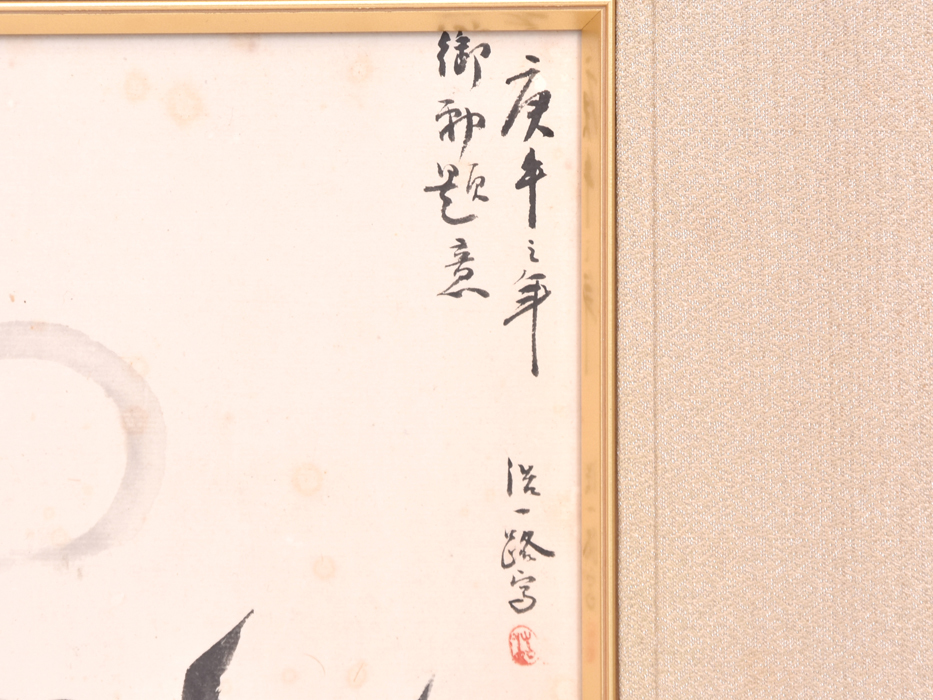 庚午之年
御勅題意
浩一路写